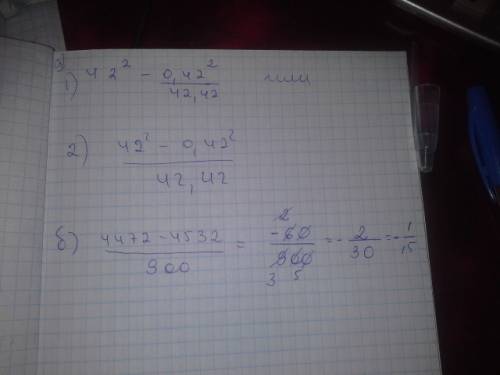 3)
1) 42² - 0,42² / 42,42 или
2) 42² - 0,42² / 42,42
б) 4472 - 4532 / 900 = -60 / 900 = - 2 / 30 = - 1 / 15
2
3 5